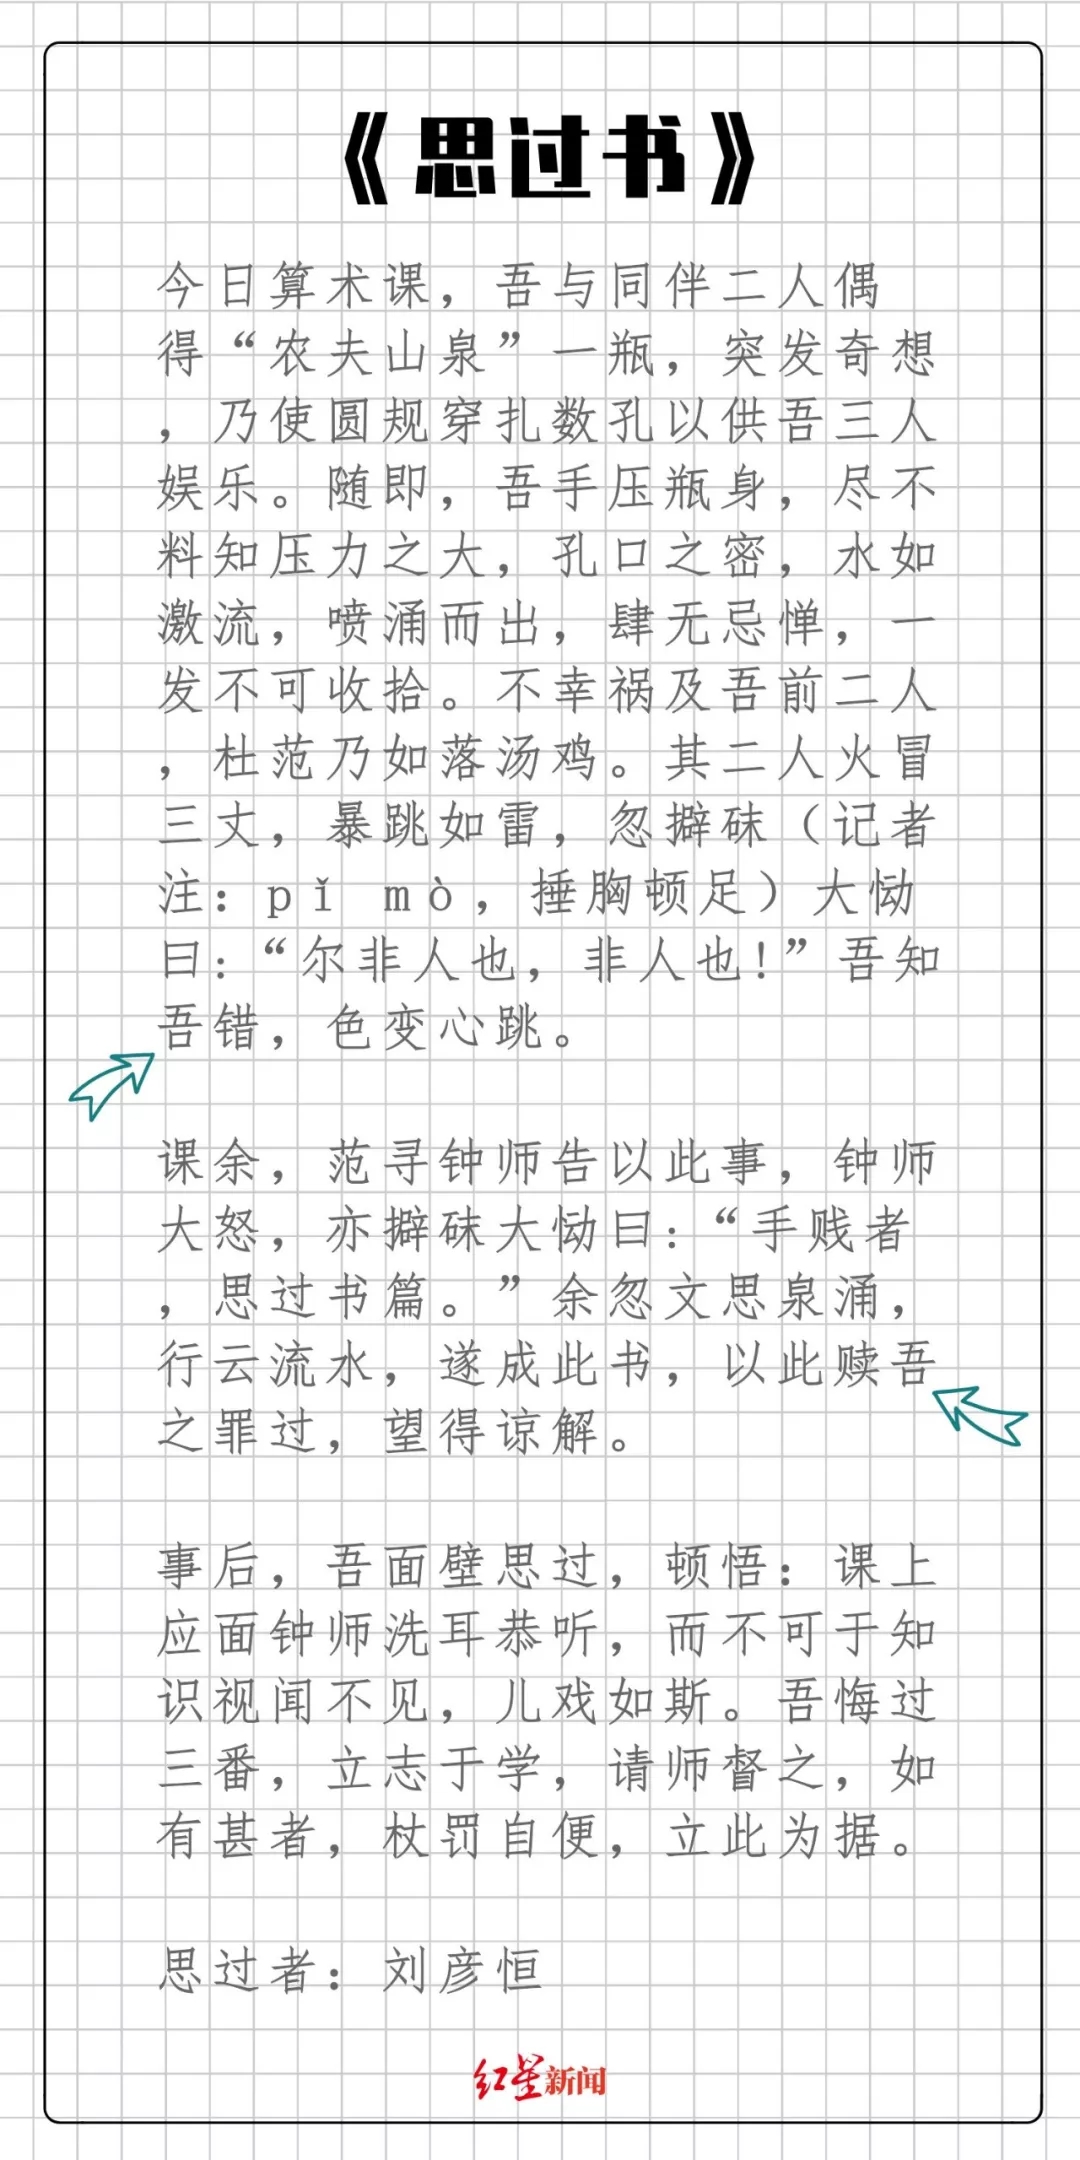 《思过书》
今日算术课，吾与同伴二人偶
得“农夫山泉”一瓶，突发奇想
，乃使圆规穿扎数孔以供吾三人
娱乐。随即，吾手压瓶身，尽不
料知压力之大，孔口之密，水如
激流，喷涌而出，肆无忌惮，一
发不可收拾。不幸祸及吾前二人
，杜范乃如落汤鸡。其二人火冒
三丈，暴跳如雷，忽擗硺（记者
注：pǐ mò，捶胸顿足）大恸
曰：“尔非人也，非人也！”吾知
吾错，色变心跳。
课余，范寻钟师告以此事，钟师
大怒，亦擗硺大恸曰：“手贱者
，思过书篇。”余忽文思泉涌，
行云流水，遂成此书，以此赎吾
之罪过，望得谅解。
事后，吾面壁思过，顿悟：课上
应面钟师洗耳恭听，而不可于知
识视闻不见，儿戏如斯。吾悔过
三番，立志于学，请师督之，如
有甚者，杖罚自便，立此为据。
思过者：刘彦恒
红星新闻